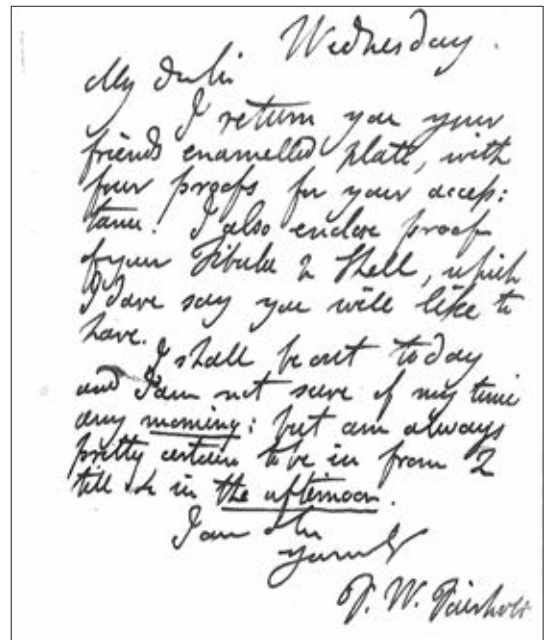 Wednesday.
My d Sir
I return you your
friends enamelled plate, with
four proofs for your accep:
tance. I also enclose proof
of your Fibula & Shell, which
I dare say you will like to
have.
I shall be out today
and I am not sure of my time
any morning: but am always
pretty certain to be in from 2
till 4 in the afternoon.
I am
yours
F. W. Fairholt